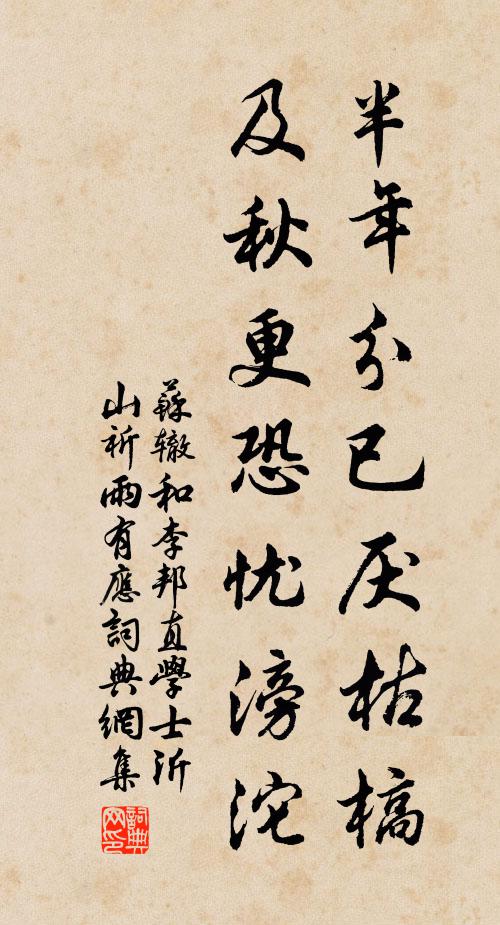 半年分已厌枯槁
及秋更恐忧滂沱
蘇辙和李邦直學士沂
山祈雨有應詞典網集
詞典网印